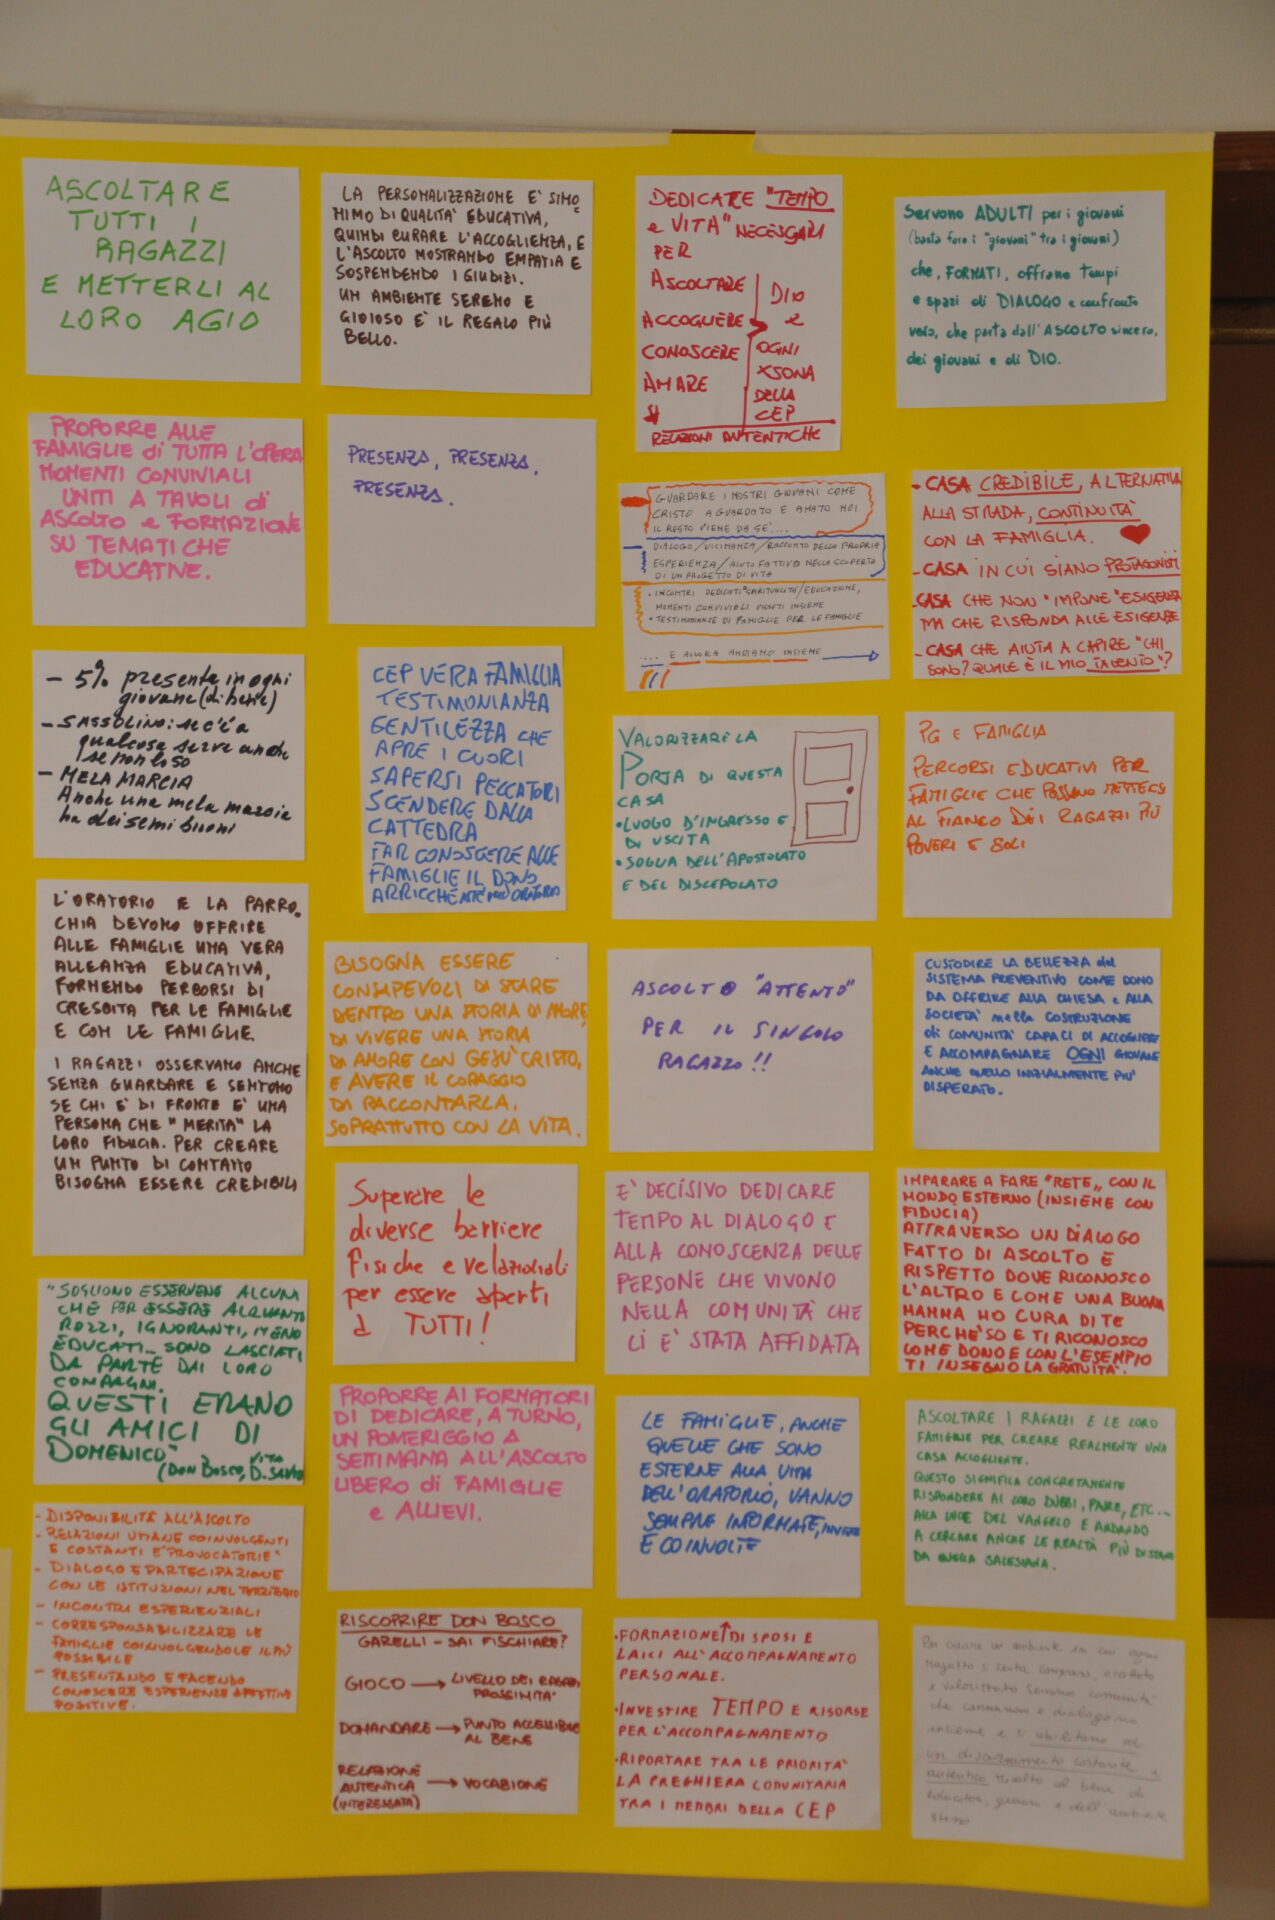 ASCOLTARE
TUTTI I
RAGAZZI
E METTERLI AL
LORO AGIO
PROPORRE ALLE
FAMIGLIE di TUTTA L'OPERA
MOMENTI CONVIVIALI
UNITI A TAVOLI di
ASCOLTO e FORMAZIONE
SU TEMATICHE
EDUCATIVE.
- 5% presente in ogni
giovane (di bene)
- SASSOLINO: se c'è a
qualcosa serve anche
se non lo so
- MELA MARCIA
Anche una mela marcia
ha dei semi buoni
L'ORATORIO E LA PARRO-
CHIA DEVONO OFFRIRE
ALLE FAMIGLIE UNA VERA
ALLEANZA EDUCATIVA,
FORNENDO PERCORSI DI
CRESCITA PER LE FAMIGLIE
E CON LE FAMIGLIE.
I RAGAZZI OSSERVANO ANCHE
SENZA GUARDARE E SENTONO
SE CHI E' DI FRONTE E' UNA
PERSONA CHE "MERITA" LA
LORO FIDUCIA. PER CREARE
UN PUNTO DI CONTATTO
BISOGNA ESSERE CREDIBILI
"SOGLIONO ESSERVENE ALCUNI
CHE PER ESSERE ALQUANTO
ROZZI, IGNORANTI, MENO
EDUCATI... SONO LASCIATI
DA PARTE DAI LORO
COMPAGNI.
QUESTI ERANO
GLI AMICI DI
DOMENICO"
(DON BOSCO, VITA D. SAVIO
- DISPONIBILITÀ ALL'ASCOLTO
- RELAZIONI UMANE COINVOLGENTI
E COSTANTI E "PROVOCATORIE"
- DIALOGO E PARTECIPAZIONE
CON LE ISTITUZIONI NEL TERRITORIO
- INCONTRI ESPERIENZIALI
- CORRESPONSABILIZZARE LE
FAMIGLIE COINVOLGENDOLE IL PIÙ
POSSIBILE
- PRESENTANDO E FACENDO
CONOSCERE ESPERIENZE AFFETTIVE
POSITIVE.
LA PERSONALIZZAZIONE E' SINO
NIMO DI QUALITA' EDUCATIVA,
QUINDI CURARE L'ACCOGLIENZA, E
L'ASCOLTO MOSTRANDO EMPATIA E
SOSPENDENDO I GIUDIZI.
UN AMBIENTE SERENO E
GIOIOSO E' IL REGALO PIÙ
BELLO.
PRESENZA, PRESENZA,
PRESENZA.
CEP VERA FAMIGLIA
TESTIMONIANZA
GENTILEZZA CHE
APRE I CUORI
SAPERSI PECCATORI
SCENDERE DALLA
CATTEDRA
FAR CONOSCERE ALLE
FAMIGLIE IL DONO
ARRICCHENTE DELL'ORATORIO
BISOGNA ESSERE
CONSAPEVOLI DI STARE
DENTRO UNA STORIA DI AMORE,
DI VIVERE UNA STORIA
DI AMORE CON GESÙ CRISTO,
E AVERE IL CORAGGIO
DI RACCONTARLA,
SOPRATTUTTO CON LA VITA.
Superare le
diverse barriere
fisiche e relazionali
per essere aperti
a TUTTI!
PROPORRE AI FORMATORI
DI DEDICARE, A TURNO,
UN POMERIGGIO A
SETTIMANA ALL'ASCOLTO
LIBERO di FAMIGLIE
e ALLIEVI.
RISCOPRIRE DON BOSCO
GARELLI - SAI FISCHIARE?
GIOCO → LIVELLO DEI RAGAZZI
PROSSIMITA'
DOMANDARE → PUNTO ACCESSIBILE
AL BENE
RELAZIONE
AUTENTICA → VOCAZIONE
(INTERESSATA)
DEDICARE "TEMPO
e VITA" NECESSARI
PER
ASCOLTARE
ACCOGLIERE
CONOSCERE
AMARE
DIO
e
OGNI
XSONA
DELLA
CEP
RELAZIONI AUTENTICHE
GUARDARE I NOSTRI GIOVANI COME
CRISTO A GUARDATO E AMATO NOI
IL RESTO VIENE DA SE'....
DIALOGO/VICINANZA/RACCONTO DELLA PROPRIA
ESPERIENZA/AIUTO FATTIVO NELLA SCOPERTA
DI UN PROGETTO DI VITA
• INCONTRI DEDICATI SPIRITUALITÀ/EDUCAZIONE,
MOMENTI CONVIVIALI VISSUTI INSIEME
• TESTIMONIANZE DI FAMIGLIE PER LE FAMIGLIE
.... E ALLORA ANDIAMO INSIEME
VALORIZZARE LA
PORTA DI QUESTA
CASA
• LUOGO D'INGRESSO E
DI USCITA
• SOGLIA DELL'APOSTOLATO
E DEL DISCEPOLATO
ASCOLTO "ATTENTO"
PER IL SINGOLO
RAGAZZO!!
E' DECISIVO DEDICARE
TEMPO AL DIALOGO E
ALLA CONOSCENZA DELLE
PERSONE CHE VIVONO
NELLA COMUNITÀ CHE
CI E' STATA AFFIDATA
LE FAMIGLIE, ANCHE
QUELLE CHE SONO
ESTERNE ALLA VITA
DELL'ORATORIO, VANNO
SEMPRE INFORMATE, INVITATE
E COINVOLTE
• FORMAZIONE DI SPOSI E
LAICI ALL'ACCOMPAGNAMENTO
PERSONALE.
• INVESTIRE TEMPO E RISORSE
PER L'ACCOMPAGNAMENTO
• RIPORTARE TRA LE PRIORITA'
LA PREGHIERA COMUNITARIA
TRA I MEMBRI DELLA CEP
Servono ADULTI per i giovani
(basta fare i "giovani" tra i giovani)
che, FORMATI, offrano tempi
e spazi di DIALOGO e confronto
vero, che parta dall'ASCOLTO sincero,
dei giovani e di DIO.
- CASA CREDIBILE, ALTERNATIVA
ALLA STRADA, CONTINUITÀ
CON LA FAMIGLIA.
- CASA IN CUI SIANO PROTAGONISTI
- CASA CHE NON "IMPONE" ESIGENZE
MA CHE RISPONDA ALLE ESIGENZE
- CASA CHE AIUTA A CAPIRE "CHI
SONO? QUALE È IL MIO TALENTO"?
PG E FAMIGLIA
PERCORSI EDUCATIVI PER
FAMIGLIE CHE POSSANO METTERSI
AL FIANCO DEI RAGAZZI PIÙ
POVERI E SOLI
CUSTODIRE LA BELLEZZA del
SISTEMA PREVENTIVO COME DONO
DA OFFRIRE ALLA CHIESA e ALLA
SOCIETA' nella COSTRUZIONE
di COMUNITA' CAPACI DI ACCOGLIERE
E ACCOMPAGNARE OGNI GIOVANE
ANCHE QUELLO INIZIALMENTE PIU'
DISPERATO.
IMPARARE A FARE "RETE" CON IL
MONDO ESTERNO (INSIEME CON
FIDUCIA)
ATTRAVERSO UN DIALOGO
FATTO DI ASCOLTO E
RISPETTO DOVE RICONOSCO
L'ALTRO E COME UNA BUONA
MAMMA HO CURA DI TE
PERCHE' SO E TI RICONOSCO
COME DONO E CON L'ESEMPIO
TI INSEGNO LA GRATUITA'.
ASCOLTARE I RAGAZZI E LE LORO
FAMIGLIE PER CREARE REALMENTE UNA
CASA ACCOGLIENTE.
QUESTO SIGNIFICA CONCRETAMENTE
RISPONDERE AI LORO DUBBI, PAURE, ETC...
ALLA LUCE DEL VANGELO E ANDANDO
A CERCARE ANCHE LE REALTÀ PIÙ DISTANTI
DA QUELLA SALESIANA.
Per creare un ambiente in cui ogni
ragazzo si senta compreso, accettato
e valorizzato servono comunità
che camminano e dialogano
insieme e si abilitano ad
un discernimento costante e
autentico rivolto al bene di
educatori, giovani e dell'ambiente
stesso